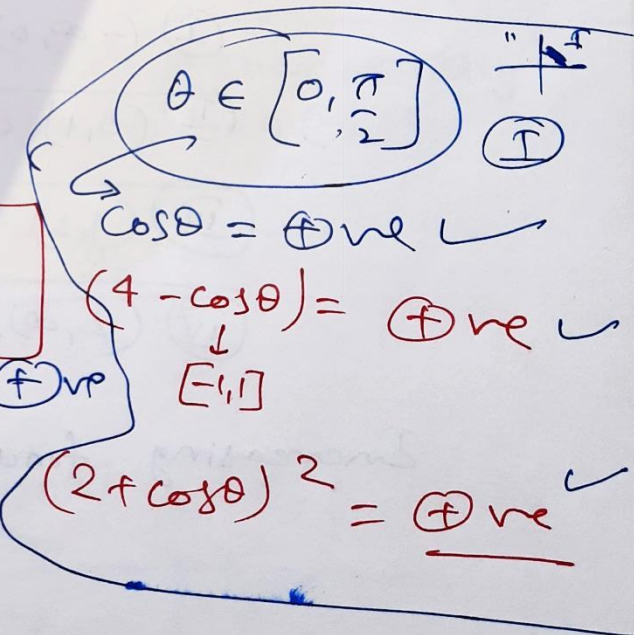 θ ∈ [0, π/2]
I
I
cosθ = ⊕ve ✓
(4 - cosθ) = ⊕ve ✓
↓
[-1,1]
⊕ve
(2+cosθ)² = ⊕ve ✓